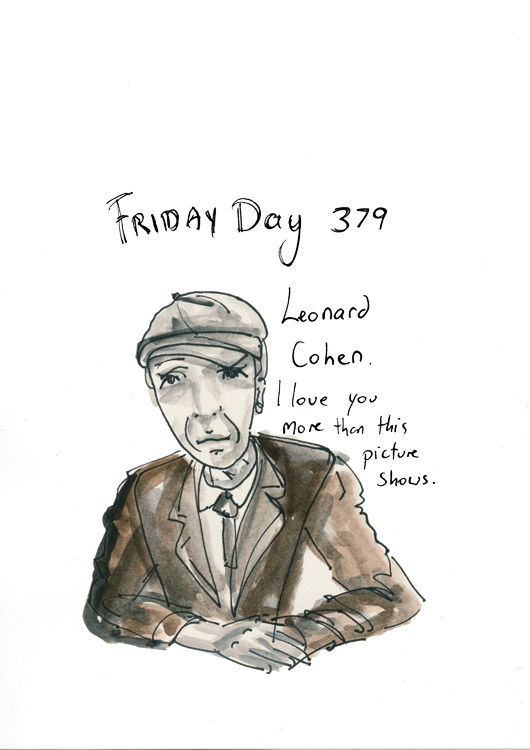 FRIDAY Day 379
Leonard
Cohen.
I love you
more than this
picture
shows.